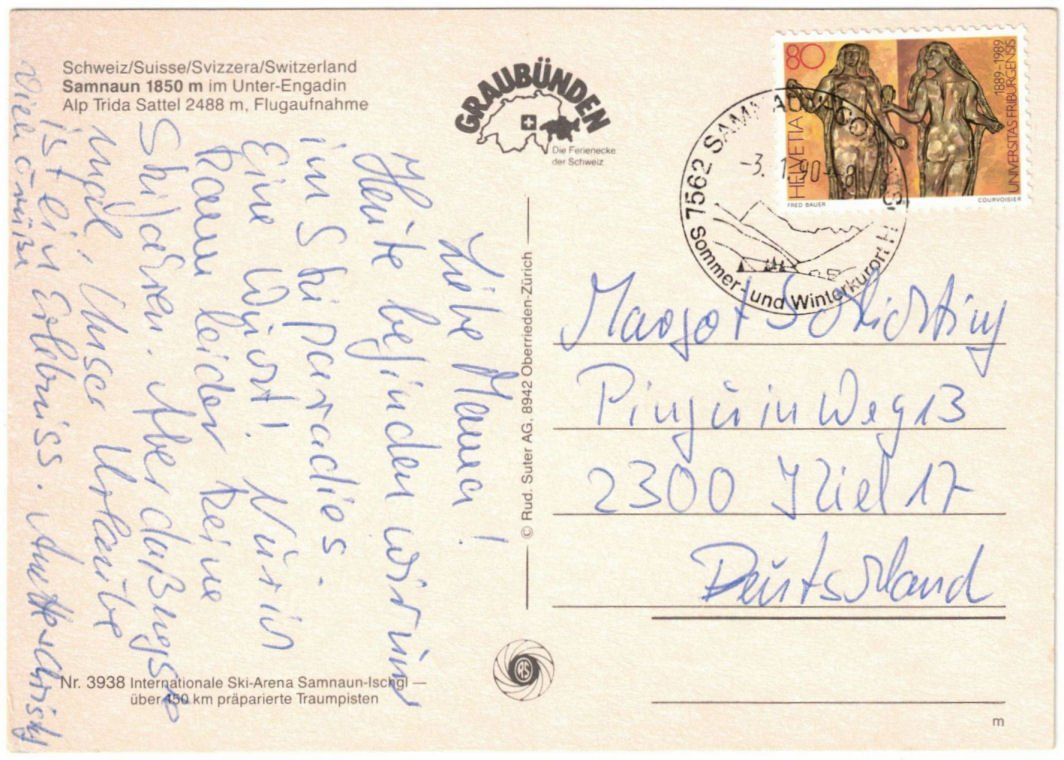 Schweiz/Suisse/Svizzera/Switzerland
Samnaun 1850 m im Unter-Engadin
Alp Trida Sattel 2488 m, Flugaufnahme
GRAUBÜNDEN
Die Ferienecke
der Schweiz
80
HELVETIA
1889-1989
UNIVERSITAS FRIBURGENSIS
FRED BAUER
COURVOISIER
7562 SAMNAUN
-3. 1. 90
Sommer- und Winterkurort
Liebe Mama!
Heute befinden wir uns
im Skiparadies.
Eine Wucht! Nur ich
kann leider keine
Ski fahren. Aber
Unser Urlaub
ist ein Erlebniss.
Viele Grüße
© Rud. Suter AG, 8942 Oberrieden-Zürich
Margot Schlichting
Pinguinweg 13
2300 Kiel 17
Deutschland
Nr. 3938 Internationale Ski-Arena Samnaun-Ischgl —
über 150 km präparierte Traumpisten
RS
m